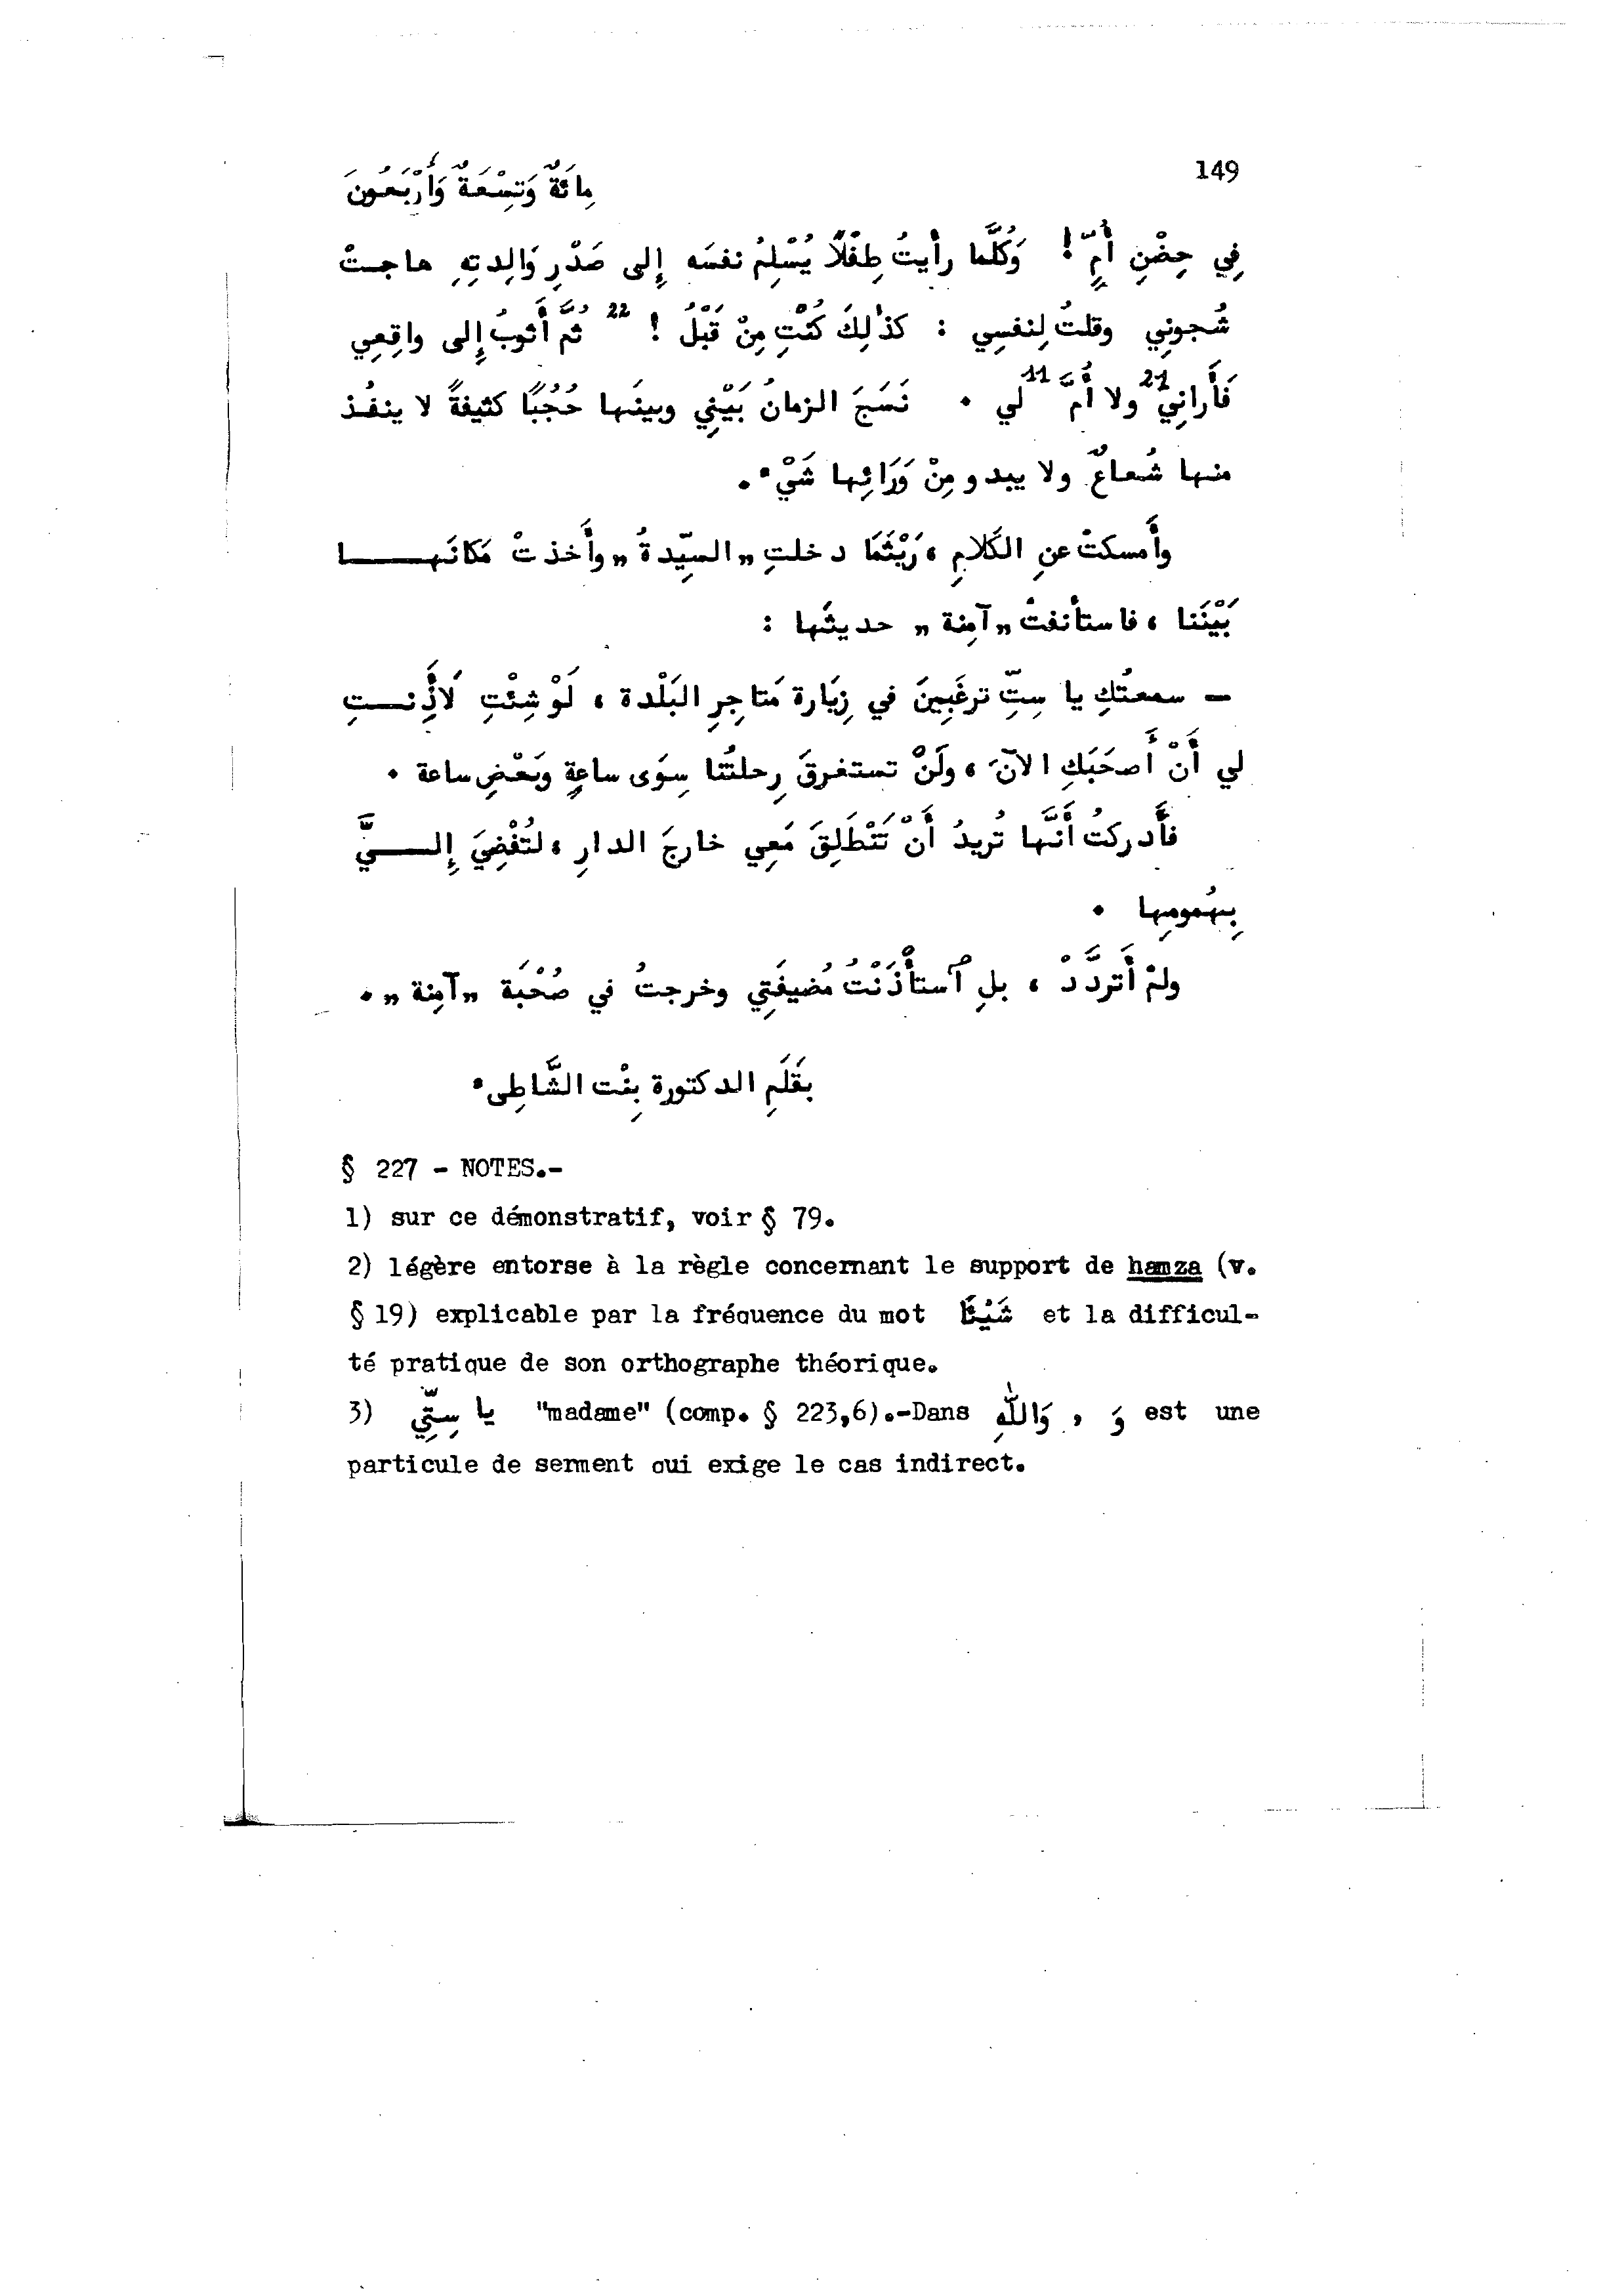 149 مِائَةٌ وَتِسْعَةٌ وَأَرْبَعُونَ
فِي حِضْنِ أُمٍّ ! وَكُلَّما رأَيتُ طِفْلًا يُسْلِمُ نفسَه إِلى صَدْرِ وَالِدتِهِ هاجـتْ
شُجونِي وقلتُ لِنفسِي : كذٰلِكَ كُنْتِ مِنْ قَبْلُ ! 22 ثُمَّ أَثوبُ إِلى واقِعِي
فَأَرانِي 21 ولا أُمَّ 11 لي . نَسَجَ الزمانُ بَيْنِي وبينَها حُجُبًا كثيفةً لا ينفُـذ
منـها شُعاعٌ ولا يبدو مِنْ وَرَائِها شَيْء .
وأَمسكتْ عنِ الكَلامِ ، رَيْثَمَا دخلتِ „السيِّدةُ„ وأَخذتْ مَكانَهـــــا
بَيْنَنا ، فاستأنفتْ „آمِنة„ حديثَها :
— سمعتُكِ يا سِتِّ ترغَبِينَ في زِيَارة مَتاجِرِ البَلْدة ، لَوْ شِئْتِ لَأَذِنـــتِ
لي أَنْ أَصحَبَكِ الآنَ ، ولَنْ تستغرقَ رِحلتُنا سِوَى ساعةٍ وبَعْضِ ساعة .
فأَدركتُ أَنَّها تُريدُ أَنْ تَنْطَلِقَ مَعِي خارجَ الدارِ ، لتُفْضِيَ إِلــــيَّ
بِهُمومِها .
ولمْ أَتردَّدْ ، بلِ ٱستأْذَنْتُ مُضيفَتِي وخرجتُ في صُحْبَة „آمِنة„ .
بقَلَمِ الدكتورة بِنْت الشَّاطِىء
§ 227 - NOTES.-
1) sur ce démonstratif, voir § 79.
2) légère entorse à la règle concernant le support de hamza (v.
§ 19) explicable par la fréquence du mot شَيْئًا et la difficul-
té pratique de son orthographe théorique.
3) يا سِتِّي "madame" (comp. § 223,6).-Dans وَاللّٰهِ , وَ est une
particule de serment qui exige le cas indirect.